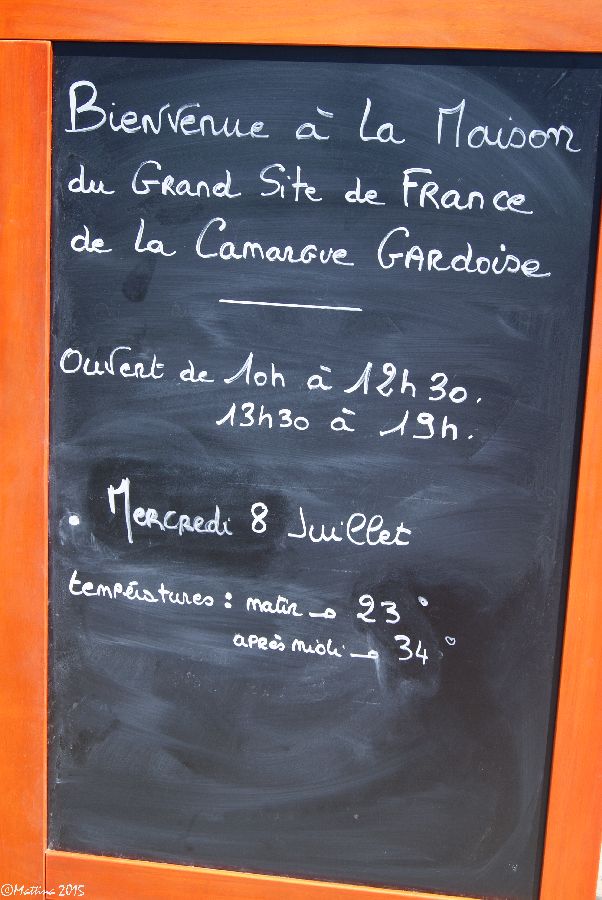 Bienvenue à La Maison
du Grand Site de France
de la Camargue Gardoise
Ouvert de 10h à 12h30.
13h30 à 19h.
. Mercredi 8 Juillet
températures : matin → 23°
après midi → 34°
©Mattina 2015